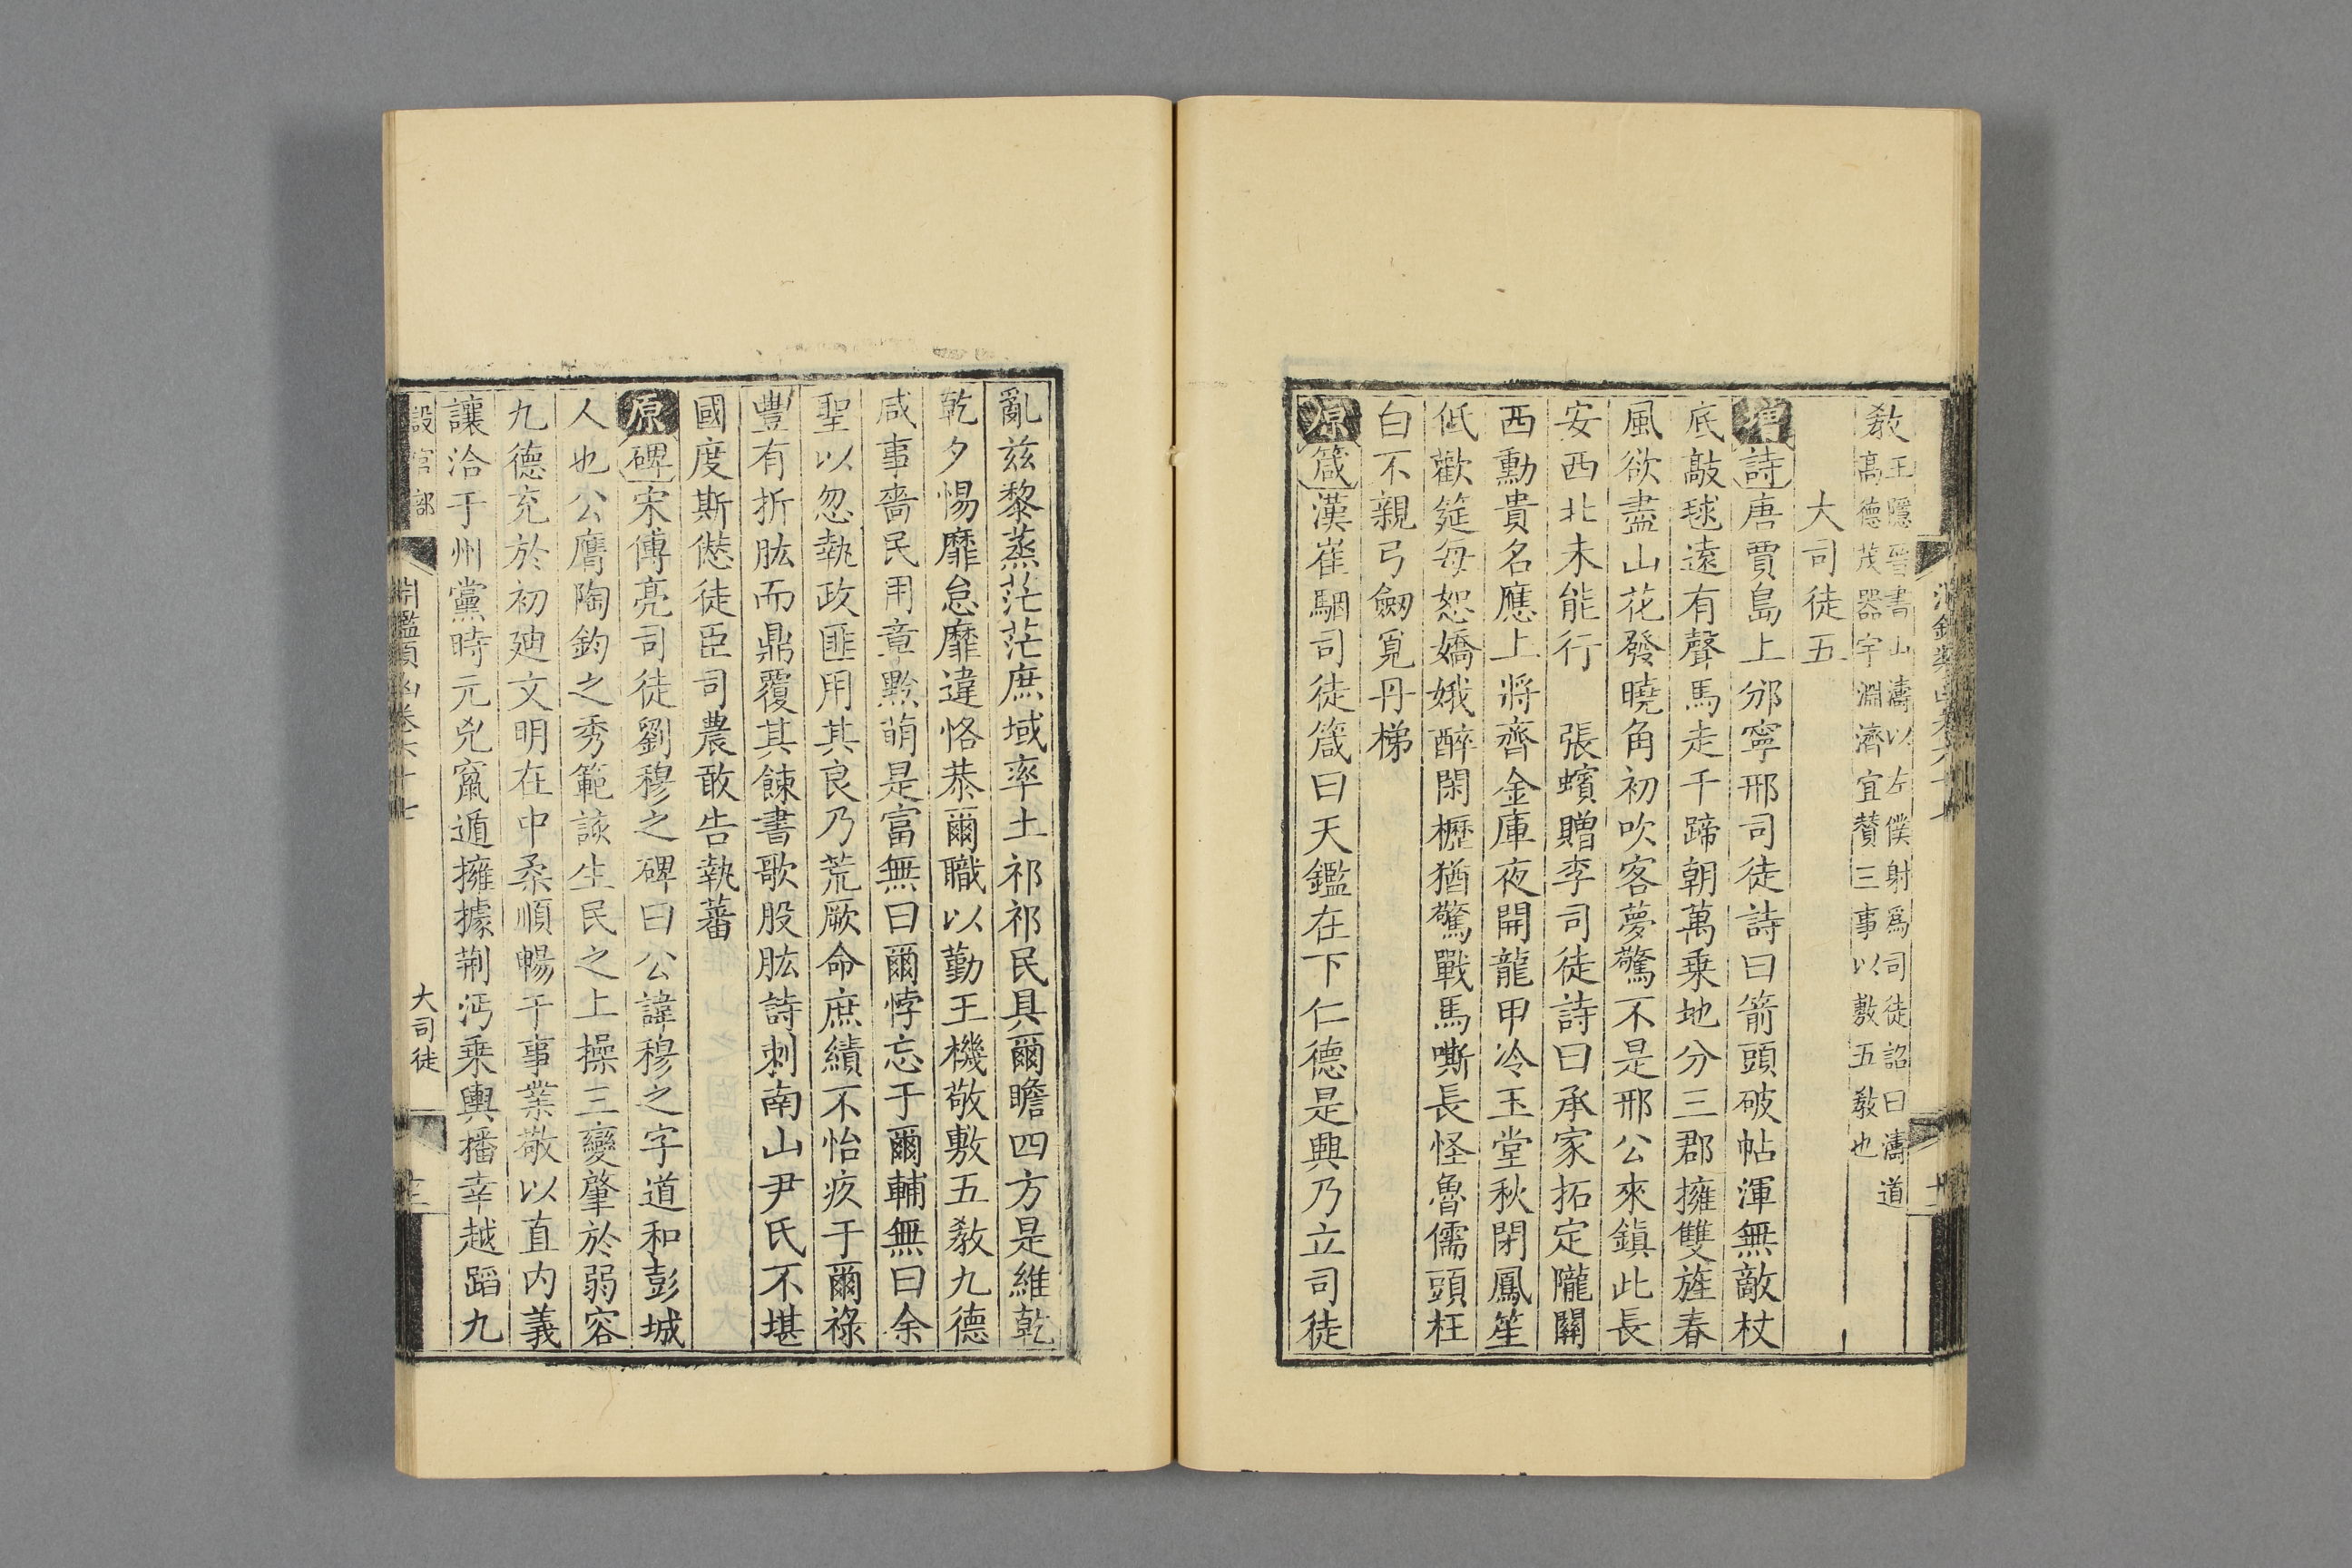 敎王隱晉書山濤以左僕射爲司徒詔曰濤道
高德茂器宇淵濟宜贊三事以敷五敎也
大司徒五
增詩唐賈島上邠寧邢司徒詩曰箭頭破帖渾無敵杖
底敲毬遠有聲馬走千蹄朝萬乗地分三郡擁雙旌春
風欲盡山花發曉角初吹客夢驚不是邢公來鎭此長
安西北未能行　張蠙贈李司徒詩曰承家拓定隴關
西勳貴名應上將齊金庫夜開龍甲冷玉堂秋閉鳳笙
低歡筵每恕嬌娥醉閑櫪猶驚戰馬嘶長怪魯儒頭枉
白不親弓劒覓丹梯
原箴漢崔駰司徒箴曰天鑑在下仁德是興乃立司徒
亂兹黎蒸茫茫庶域率土祁祁民具爾瞻四方是維乾
乾夕惕靡怠靡違恪恭爾職以勤王機敬敷五敎九德
咸事嗇民用章黔萌是富無曰爾悖忘于爾輔無曰余
聖以忽執政匪用其良乃荒厥命庶績不怡疚于爾祿
豐有折肱而鼎覆其餗書歌股肱詩刺南山尹氏不堪
國度斯愆徒臣司農敢告執蕃
原碑宋傅亮司徒劉穆之碑曰公諱穆之字道和彭城
人也公膺陶鈞之秀範該生民之上操三變肇於弱容
九德充於初廸文明在中柔順暢于事業敬以直内義
讓洽于州黨時元兇竄遁擁據荆沔乗輿播幸越蹈九
設官部
淵鑑類函卷六十七
大司徒